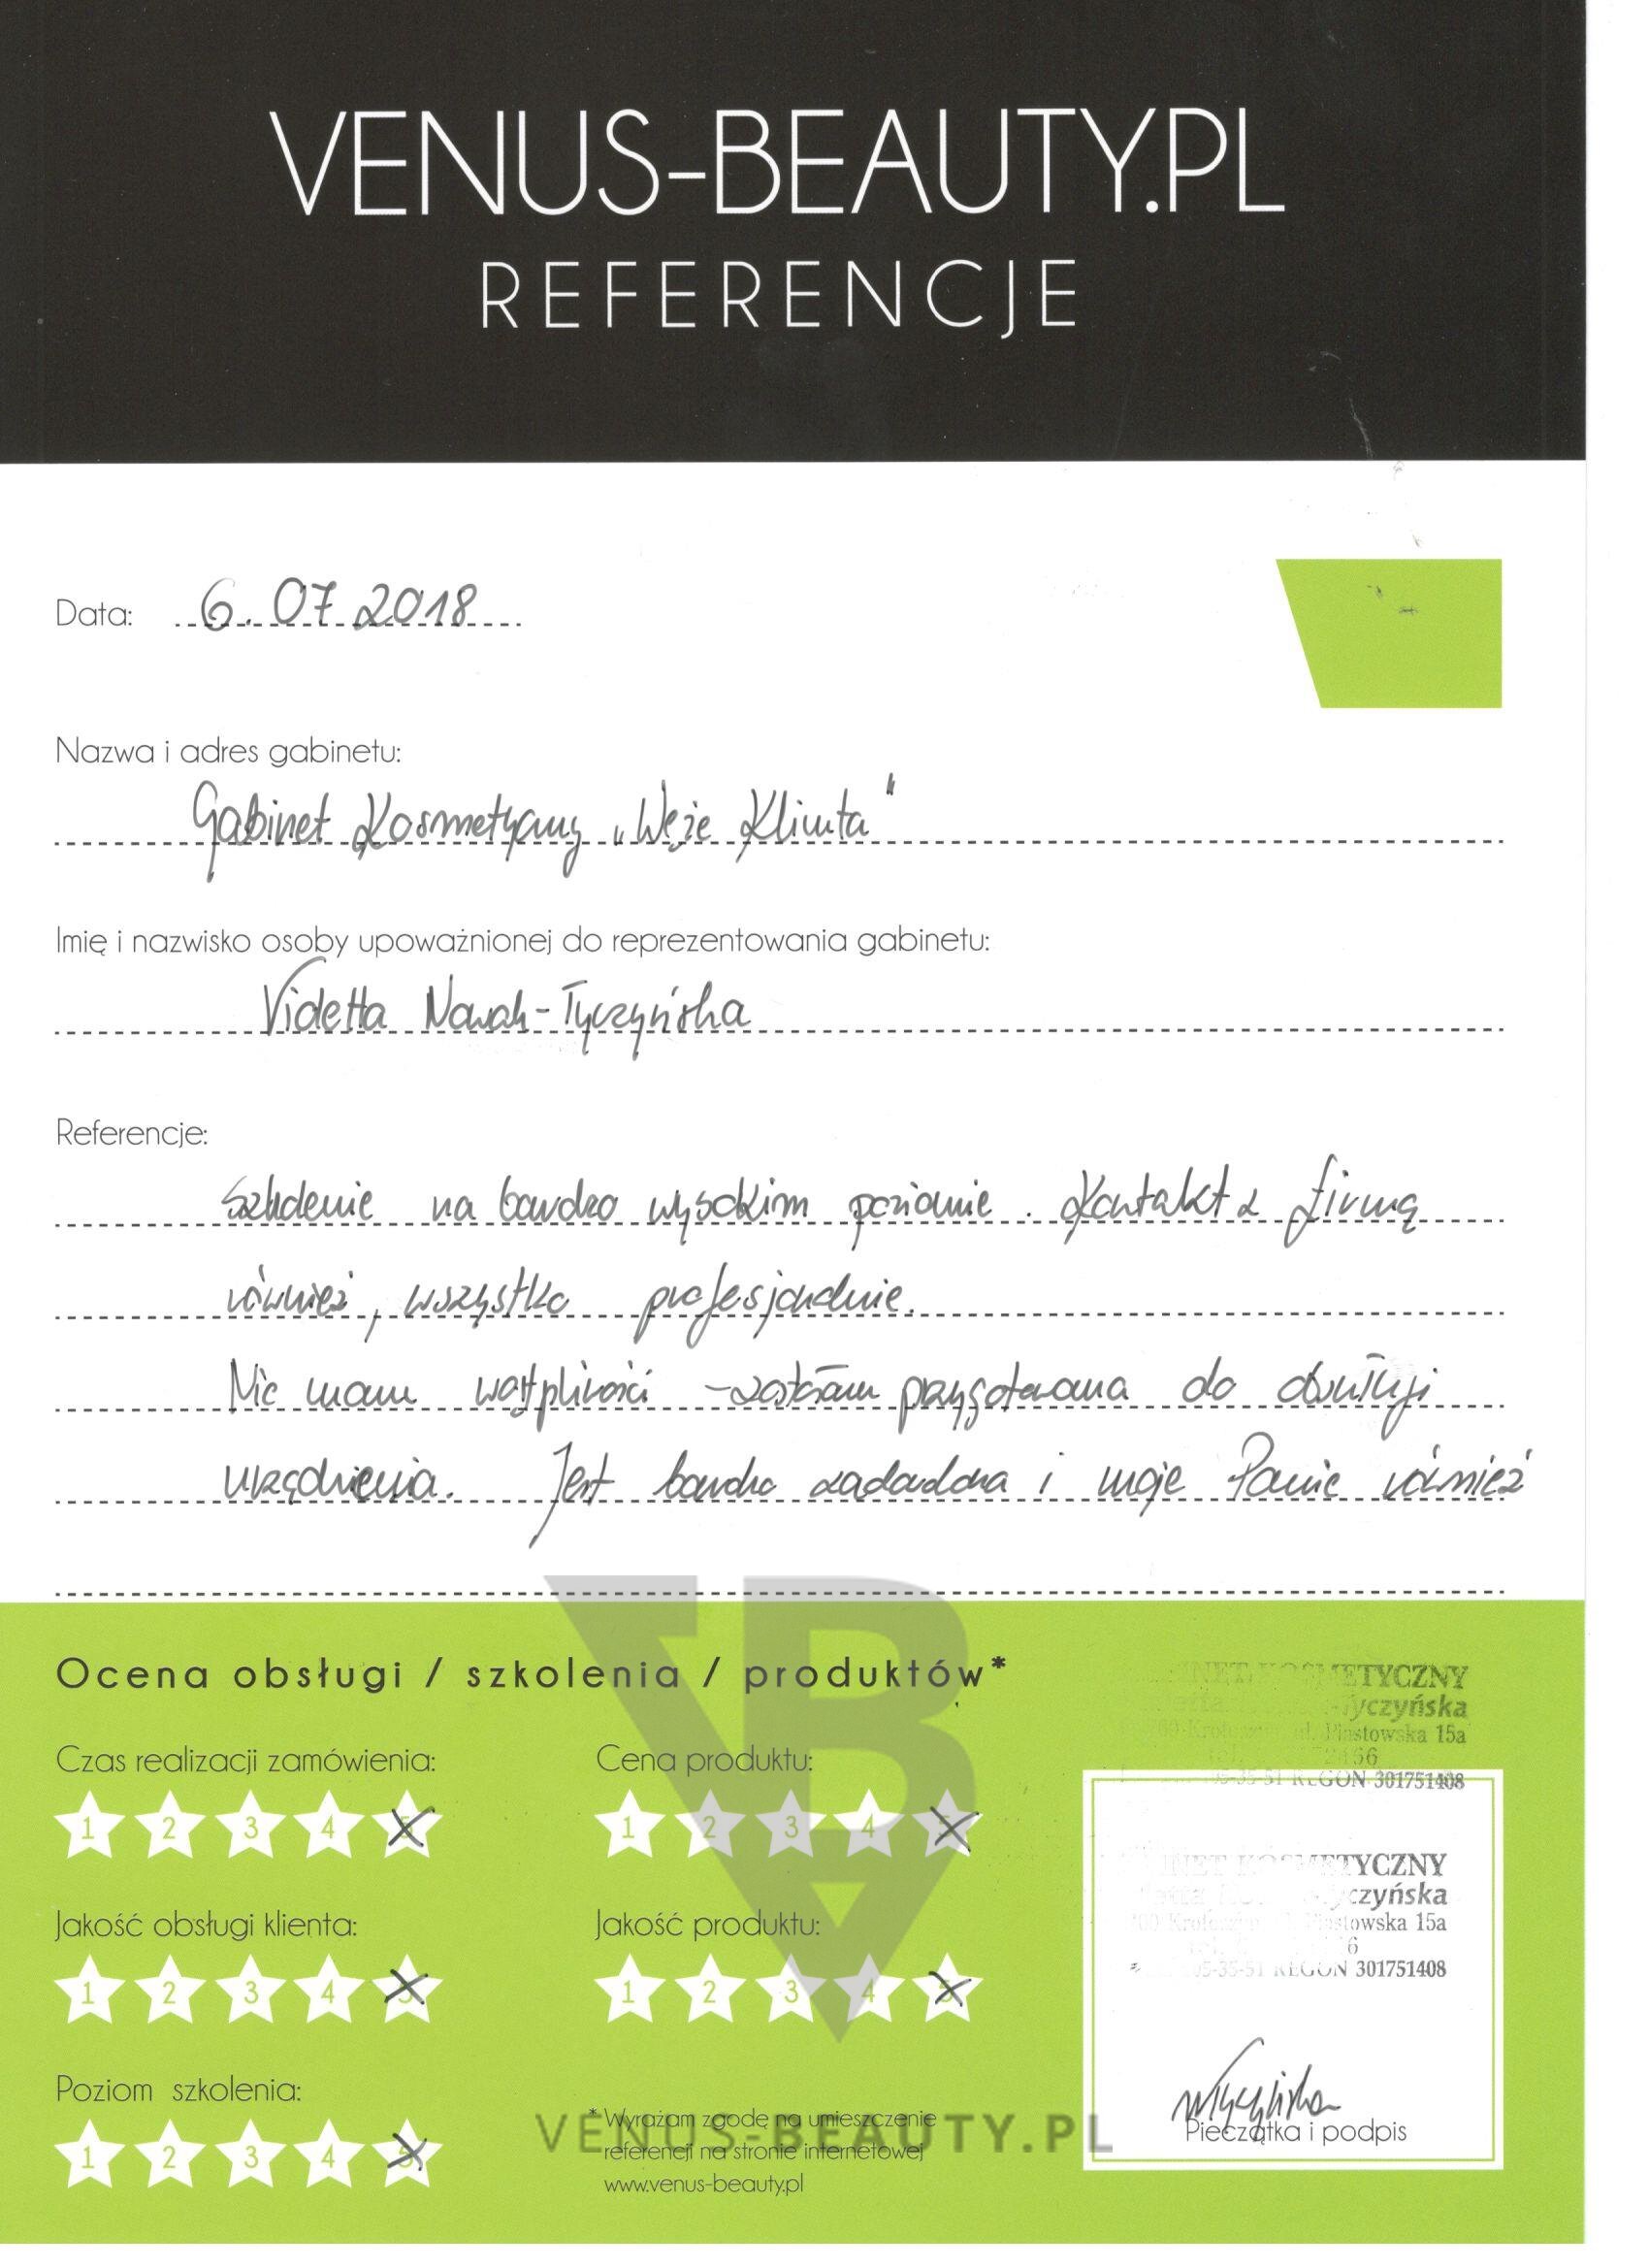 VENUS-BEAUTY.PL
REFERENCJE
Data: 6.07.2018
Nazwa i adres gabinetu:
Gabinet Kosmetyczny „Weże Klimta"
Imię i nazwisko osoby upoważnionej do reprezentowania gabinetu:
Videtta Nowak-Tyczyńska
Referencje:
Szkolenie na bardzo wysokim poziomie. Kontakt z firmą
również, wszystko profesjonalnie.
Nie mam wątpliwości - zostałam przygotowana do obsługi
urządzenia. Jest bardzo zadowolona i moje Panie również
Ocena obsługi / szkolenia / produktów*
Czas realizacji zamówienia:
1 2 3 4 5
Cena produktu:
1 2 3 4 5
Jakość obsługi klienta:
1 2 3 4 5
Jakość produktu:
1 2 3 4 5
Poziom szkolenia:
1 2 3 4 5
* Wyrażam zgodę na umieszczenie
referencji na stronie internetowej
www.venus-beauty.pl
VENUS-BEAUTY.PL
KOSMETYCZNY
yczyńska
ul. Piastowska 15a
REGON 301751408
KOSMETYCZNY
czyńska
Piastowska 15a
05-35-51 REGON 301751408
Pieczątka i podpis